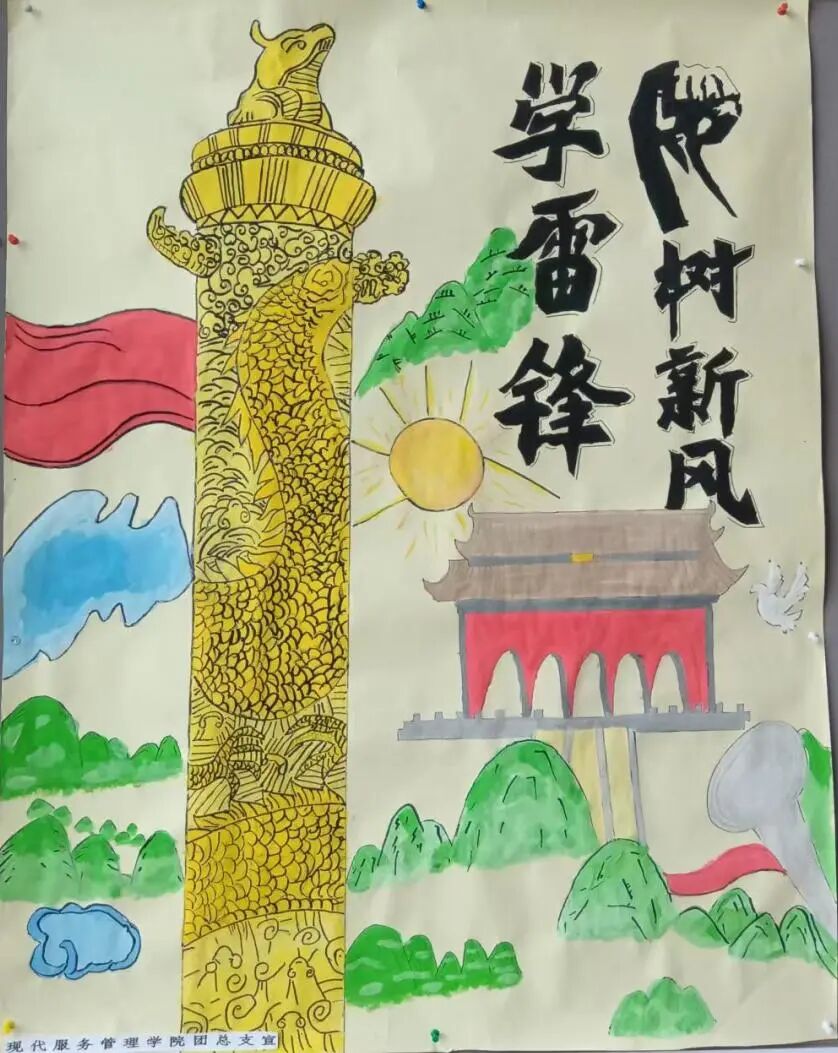 学雷锋
树新风
现代服务管理学院团总支宣